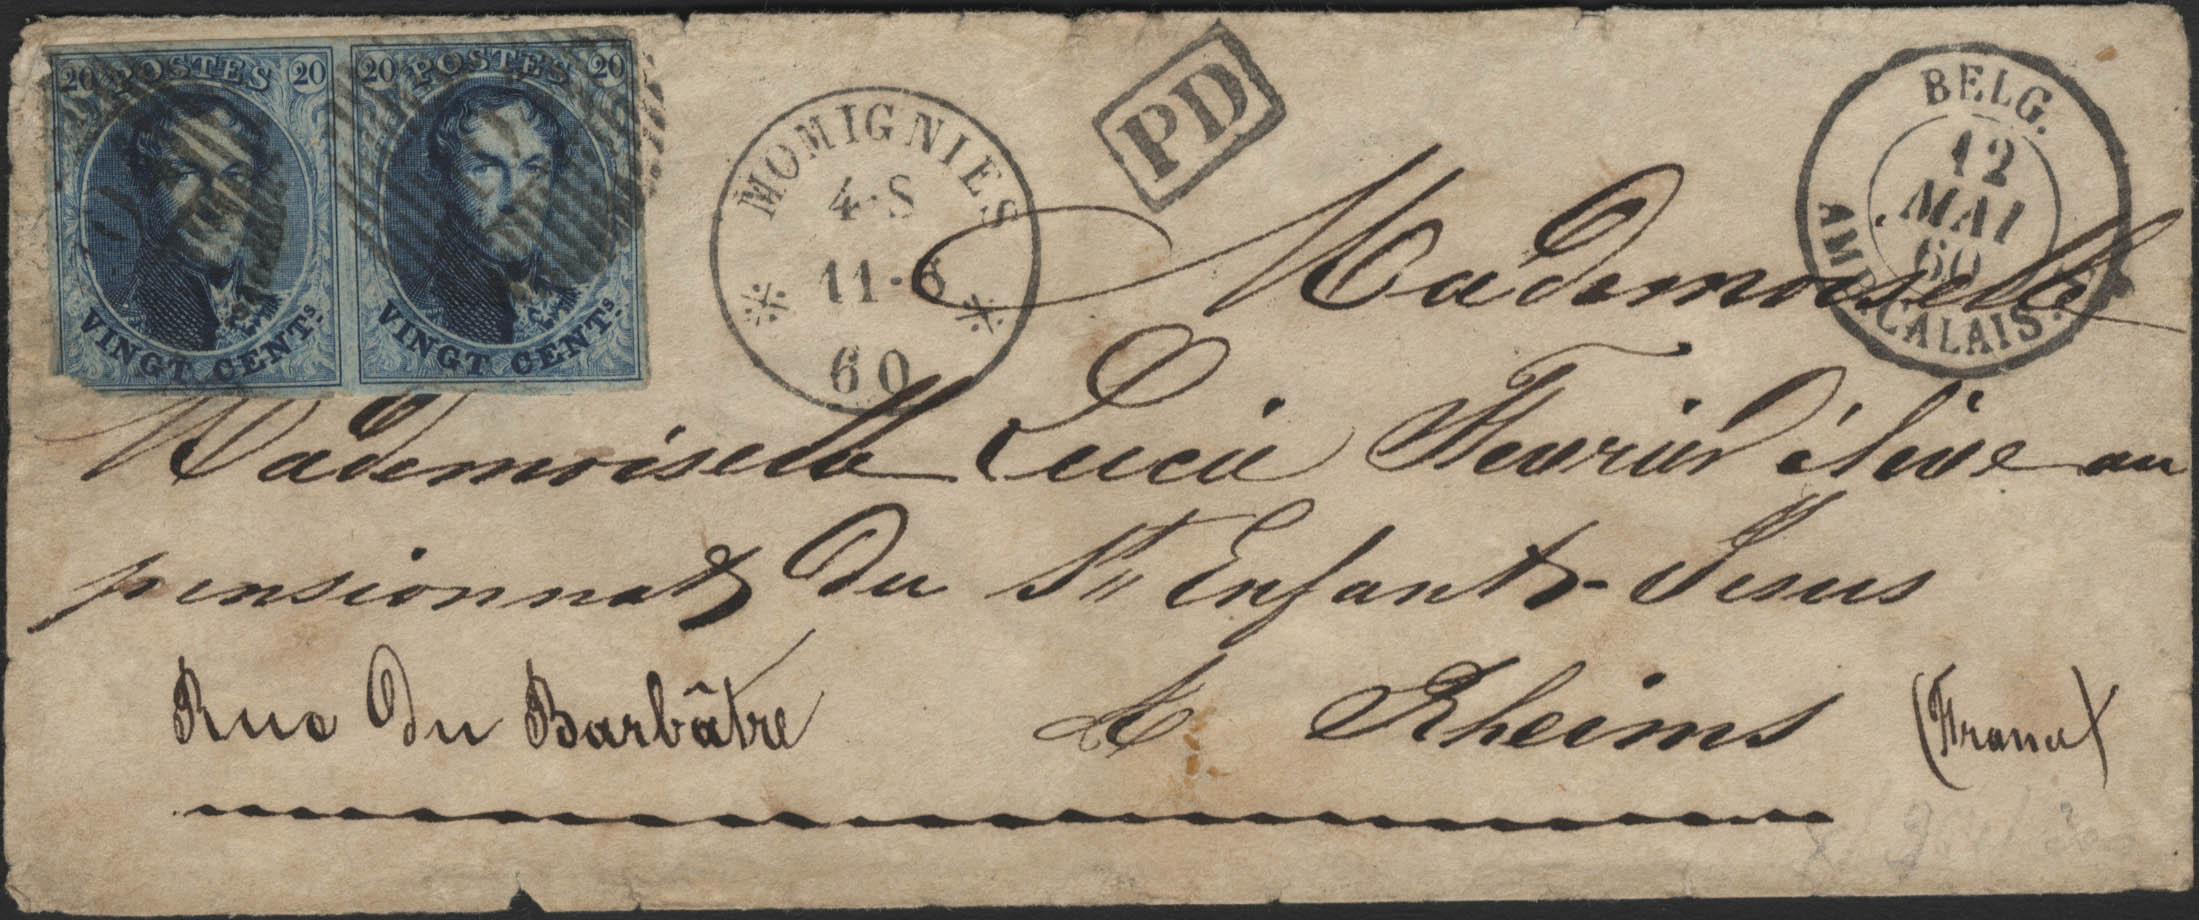 20 POSTES 20
VINGT CENTS.
20 POSTES 20
VINGT CENTS.
MOMIGNIES
4·S
11·5
60
PD
BELG.
12
MAI
60
AMB.CALAIS.
Mademoiselle
Mademoiselle Lucie élève au
pensionnat du St Enfant-Jesus
Rue du Barbâtre à Rheims (France)